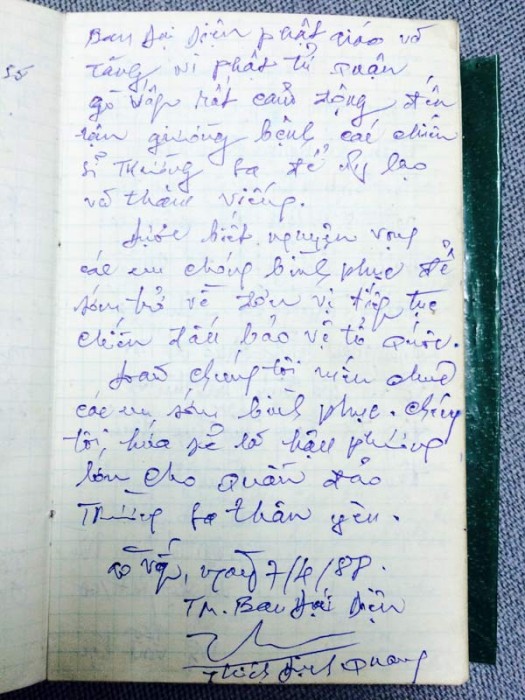 55
Ban Đại Diện phật giáo và
tăng ni phật tử Quận
gò vấp rất cảm động đến
tận giường bệnh các chiến
sĩ Trường Sa để ủy lạo
và thăm viếng.
Được biết nguyện vọng
các em chóng bình phục để
sớm trở về đơn vị tiếp tục
chiến đấu bảo vệ tổ Quốc.
chúng tôi
các em sớm bình phục. chúng
tôi, hứa sẽ là hậu phương
lớn cho Quần đảo
Trường Sa thân yêu.
Gò vấp, ngày 7/4/88.
TM. Ban Đại Diện
Thích Quang